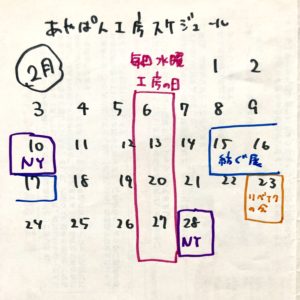 あやぱん工房スケジュール
2月
毎日水曜
工房の日
1 2
3 4 5 6 7 8 9
10 11 12 13 14 15 16
NY
紡ぐ展
17 18 19 20 21 22 23
リベイクの会
24 25 26 27 28
NY